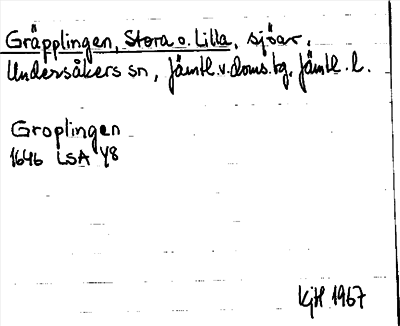 Gräpplingen, Stora o. Lilla, sjöar,
Undersåkers sn, Jämtl. v. doms. tg, Jämtl. l.
Groplingen
1646 LSA Y8
KjH 1967